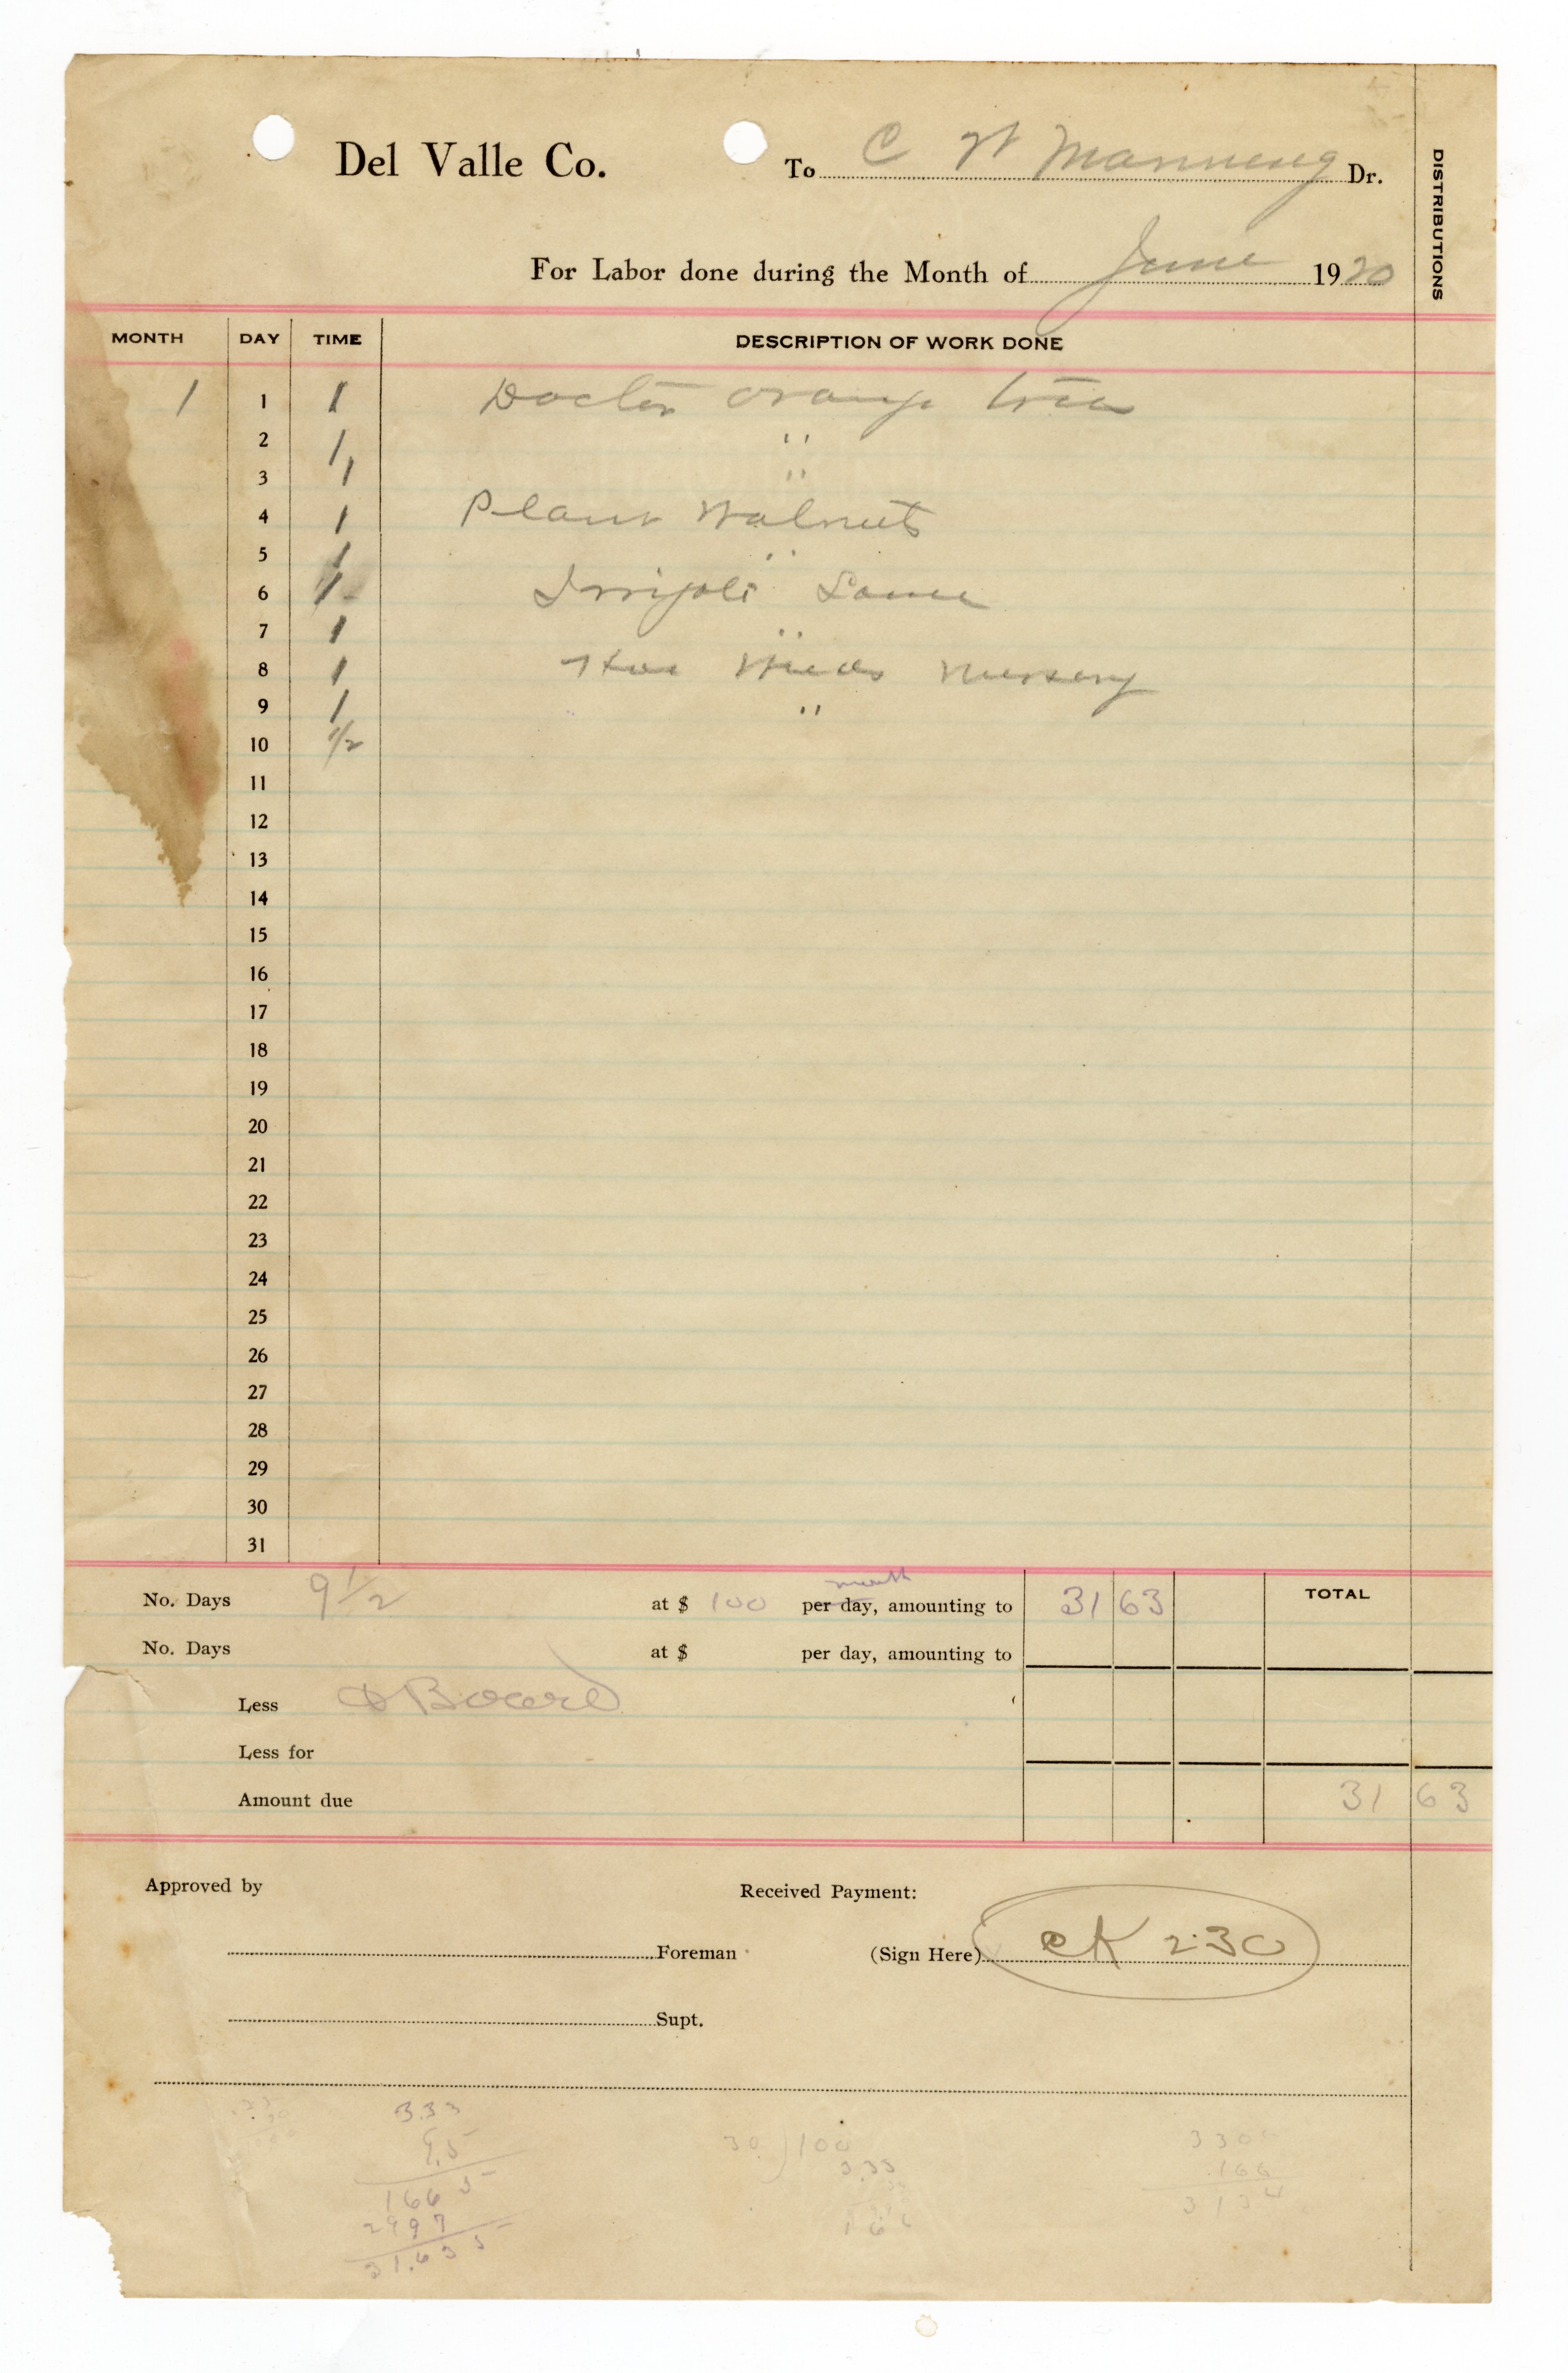 Del Valle Co. To C W Manning Dr.
DISTRIBUTIONS
For Labor done during the Month of June 1920
MONTH DAY TIME DESCRIPTION OF WORK DONE
1 1 1 Doctor orange trees
2 1 "
3 1 "
4 1 Plant Walnuts
5 1 "
6 1 Irrigate Same
7 1 "
8 1 Hoe Weeds Nursery
9 1 "
10 1/2
11
12
13
14
15
16
17
18
19
20
21
22
23
24
25
26
27
28
29
30
31
No. Days 9 1/2 at $ 100 per day, month amounting to 31 63 TOTAL
No. Days at $ per day, amounting to
Less & Board
Less for
Amount due 31 63
Approved by Received Payment:
Foreman (Sign Here) CK 230
Supt.
3.33 30)100 330
9.5 3.33 166
1665 166 3134
2997
31.635